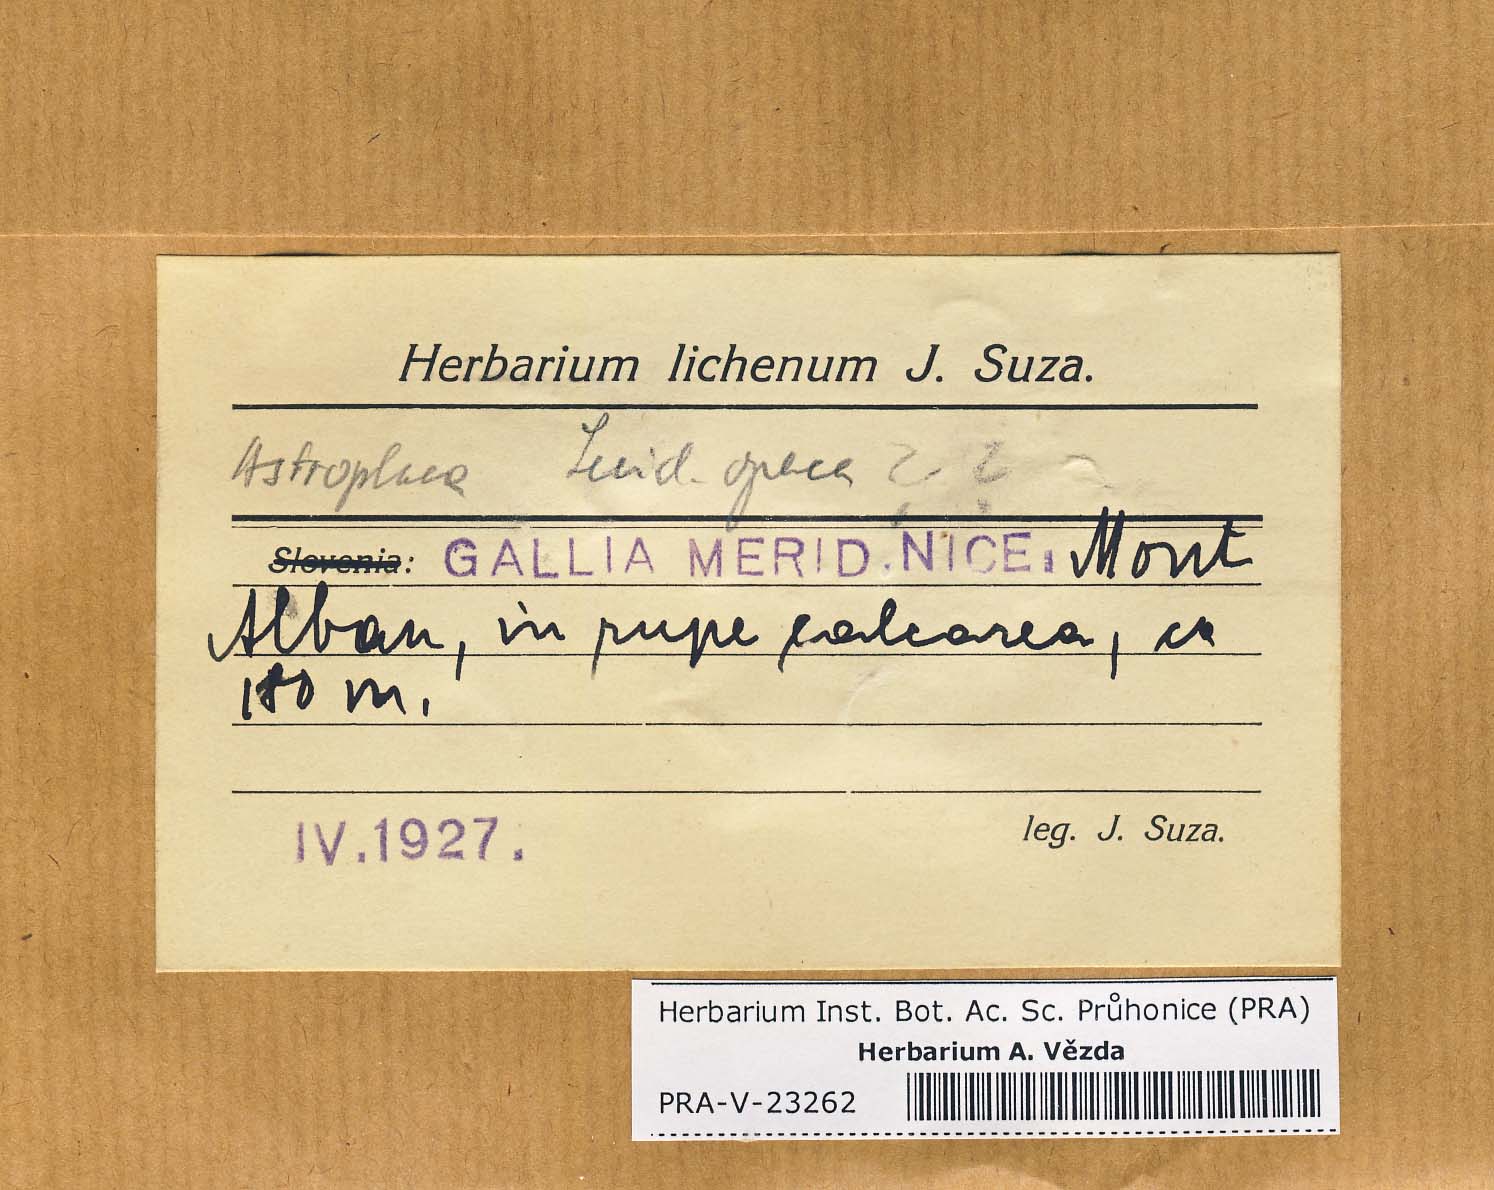 Herbarium lichenum J. Suza.
Astroplaca Lecid. opaca ? ?
Slovenia: GALLIA MERID. NICE: Mont
Alban, in rupe calcarea, ca
180 m.
IV.1927.
leg. J. Suza.
Herbarium Inst. Bot. Ac. Sc. Průhonice (PRA)
Herbarium A. Vězda
PRA-V-23262